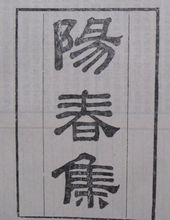 陽春集